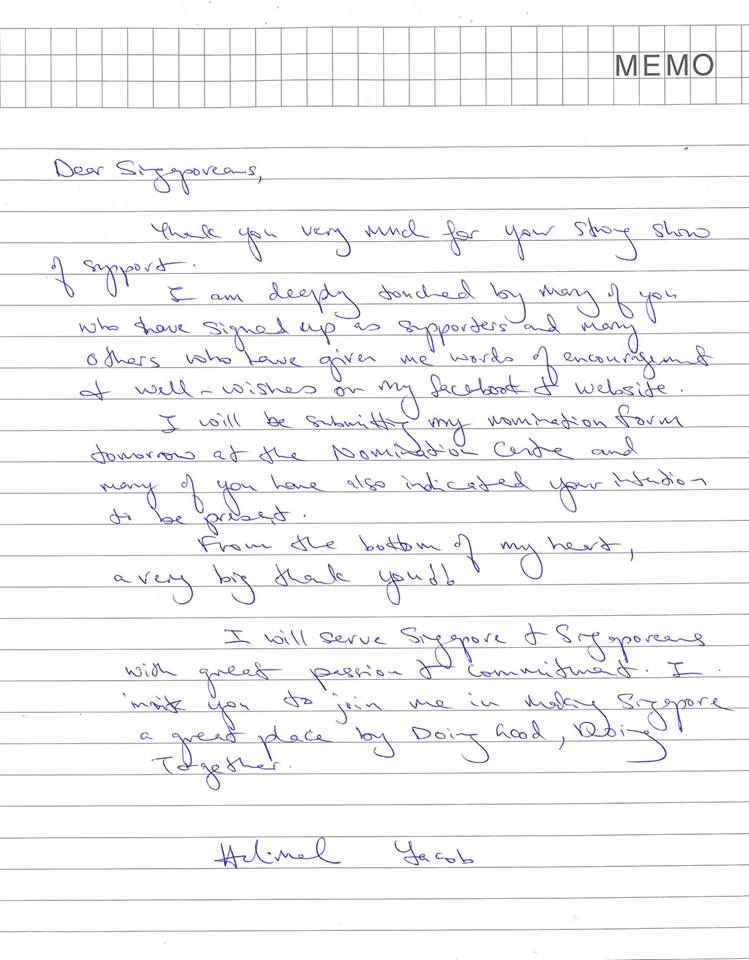 MEMO
Dear Singaporeans,
Thank you very much for your strong show
of support.
I am deeply touched by many of you
who have signed up as supporters and many
others who have given me words of encouragement
& well-wishes on my facebook & website.
I will be submitting my nomination form
tomorrow at the Nomination Centre and
many of you have also indicated your intention
to be present.
From the bottom of my heart,
a very big thank you!!
I will serve Singapore & Singaporeans
with great passion & commitment. I
invite you to join me in making Singapore
a great place by Doing Good, Doing
Together.
Halimah Yacob